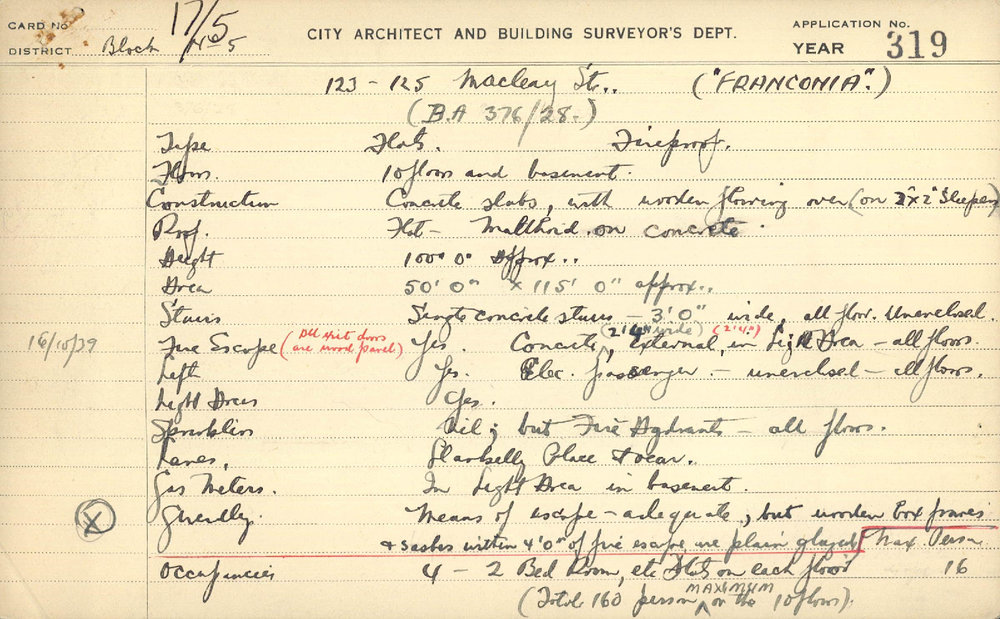 CARD No 17/5 CITY ARCHITECT AND BUILDING SURVEYOR'S DEPT. APPLICATION No.
DISTRICT Block No 5 YEAR 319
123 - 125 Macleay St.. ("FRANCONIA".)
(B.A 376/28.)
Type Flats. Fireproof.
Floors. 10 floors and basement.
Construction Concrete slabs, with wooden flooring over (on 2"x2" Sleepers)
Roof. Flat - Malthoid on concrete.
Height 100' 0" Approx..
Area 50' 0" x 115' 0" approx..
Stairs Single concrete stairs - 3'0" wide, all floors. Unenclosed.
(2'4" wide) (2'4")
16/10/39 Fire Escape (All exit doors are wood panel) Yes. Concrete, External, in Light Area - all floors.
Lift Yes. Elec. passenger - unenclosed - all floors.
Light Areas Yes.
Sprinklers Nil; but Fire Hydrants - all floors.
Lanes. Place & rear.
Gas Meters. In Light Area in basement.
(X) Generally. Means of escape - adequate, but wooden Box frames
& sashes within 4'0" of fire escape are plain glazed Max Person
Occupancies 4 - 2 Bed Room, etc Flats on each floor 16
(Total 160 person MAXIMUM on the 10 floors).